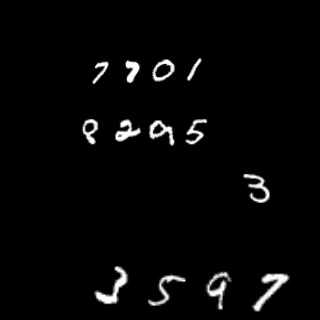 7701
8295
3
3597